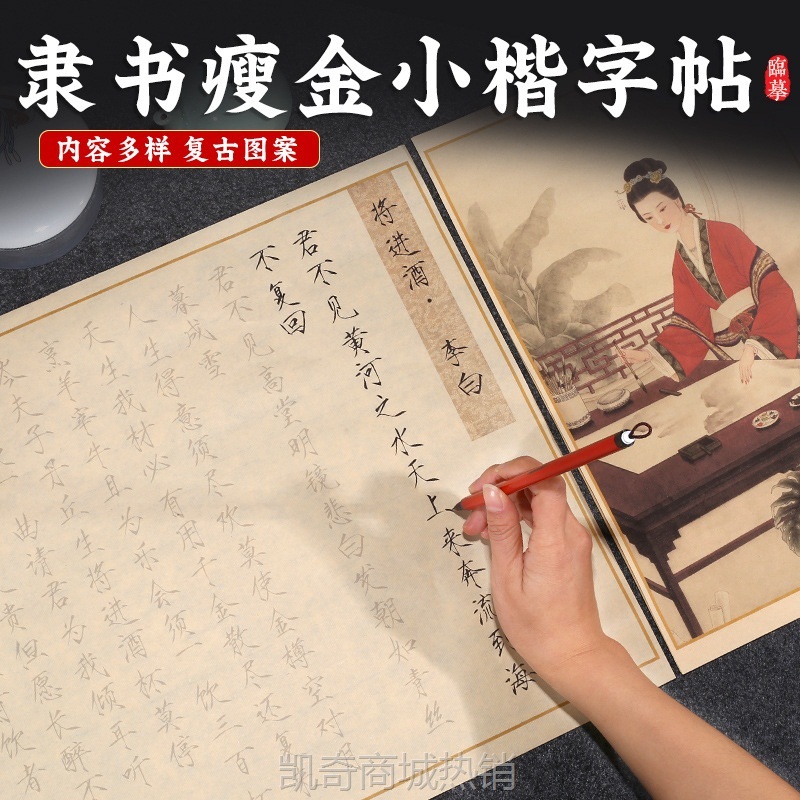 隶书瘦金小楷字帖
臨摹
内容多样 复古图案
将进酒·李白
君不见黄河之水天上来奔流到海
不复回
君不见高堂明镜悲白发朝如青丝
暮成雪
人生得意须尽欢莫使金樽空对
天生我材必有用千金散尽还复
烹羊宰牛且为乐会须一饮三百
岑夫子丹丘生将进酒杯莫停
曲请君为我倾耳听
贵但愿长醉不
饮者
凯奇商城热销